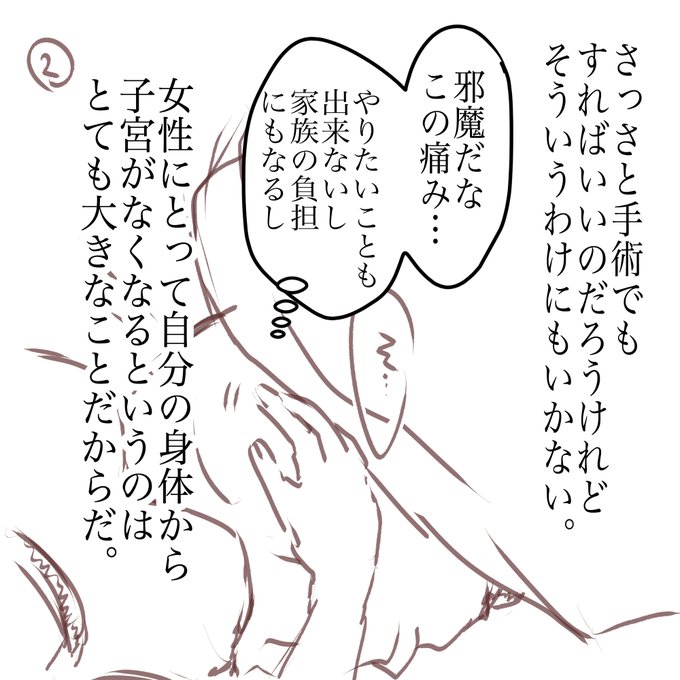 さっさと手術でも
すればいいのだろうけれど
そういうわけにもいかない。
邪魔だな
この痛み…
やりたいことも
出来ないし
家族の負担
にもなるし
女性にとって自分の身体から
子宮がなくなるというのは
とても大きなことだからだ。
2